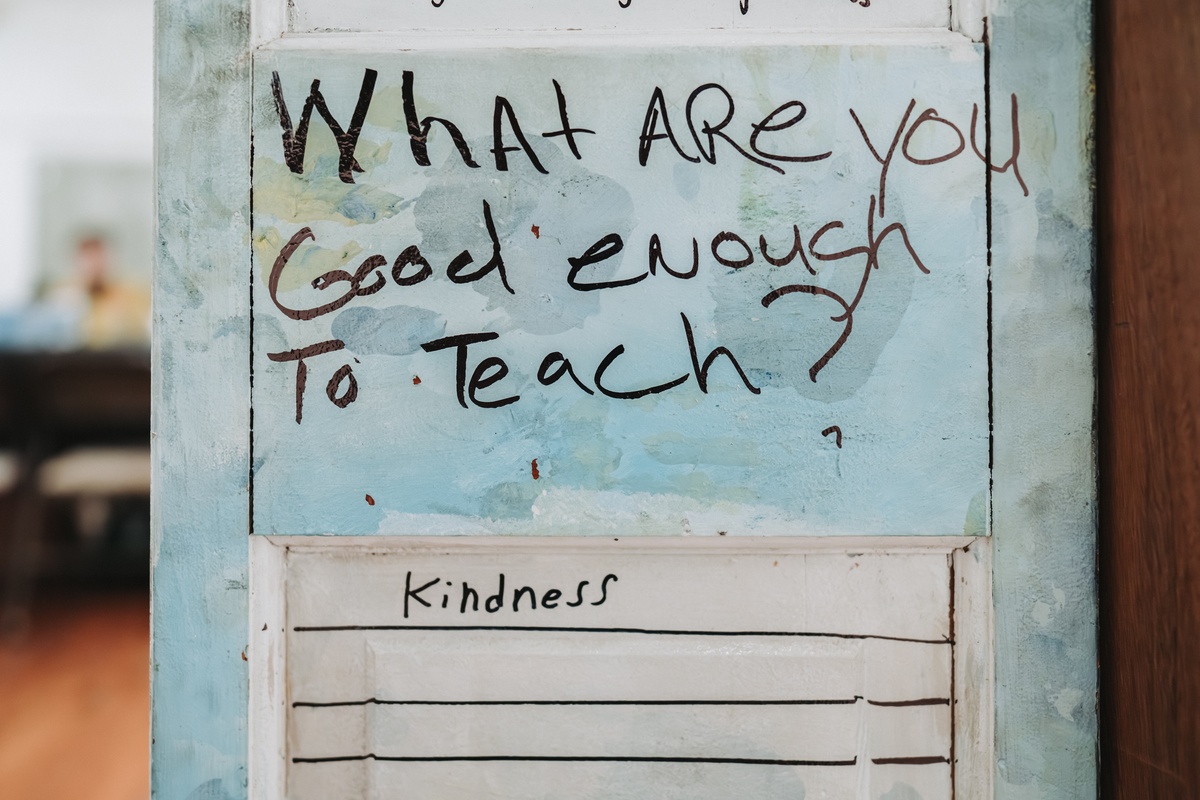 What ARe you
Good enough
To Teach ?
Kindness